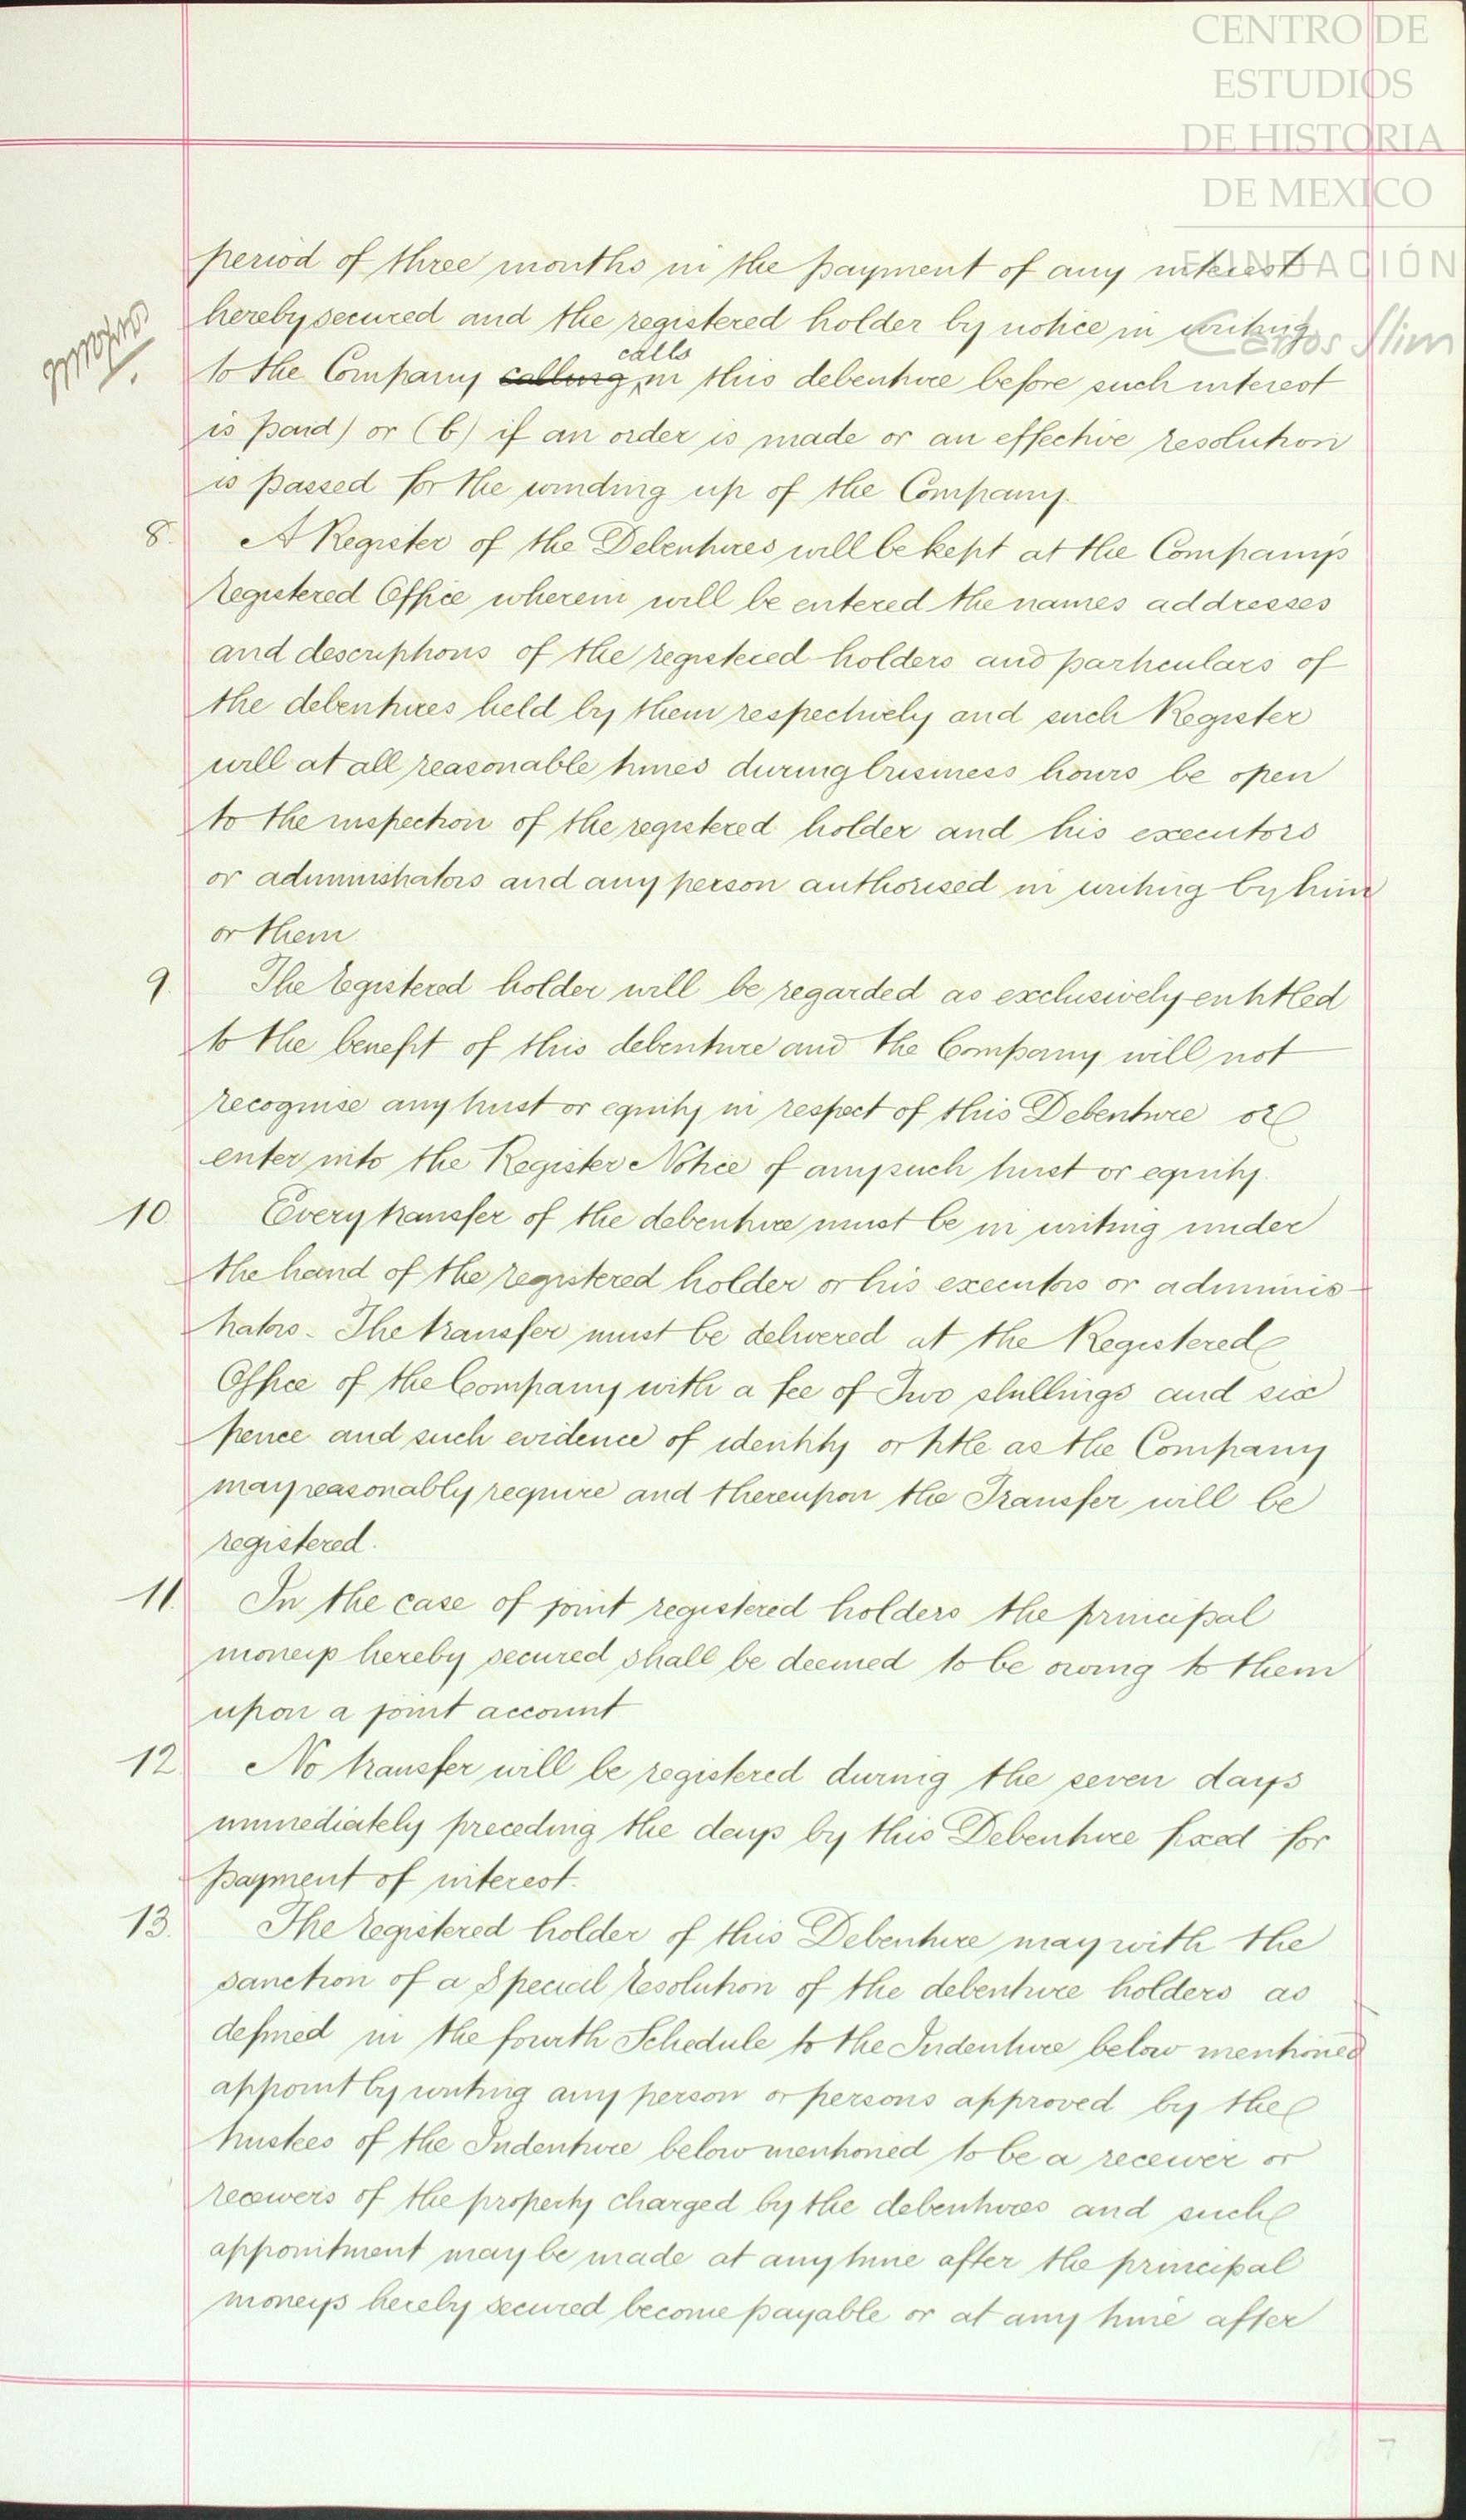 CENTRO DE
ESTUDIOS
DE HISTORIA
DE MEXICO
FUNDACIÓN
Carlos Slim
period of three months in the payment of any interest
hereby secured and the registered holder by notice in writing
to the Company calling calls in this debenture before such interest
is paid) or (b) if an order is made or an effective resolution
is passed for the winding up of the Company.
8. A Register of the Debentures will be kept at the Company's
registered Office wherein will be entered the names addresses
and descriptions of the registered holders and particulars of
the debentures held by them respectively and such Register
will at all reasonable times during business hours be open
to the inspection of the registered holder and his executors
or administrators and any person authorised in writing by him
or them.
9. The registered holder will be regarded as exclusively entitled
to the benefit of this debenture and the Company will not
recognise any trust or equity in respect of this Debenture or
enter into the Register Notice of any such trust or equity.
10. Every transfer of the debenture must be in writing under
the hand of the registered holder or his executors or adminis-
trators. The transfer must be delivered at the Registered
Office of the Company with a fee of Two shillings and six
pence and such evidence of identity or title as the Company
may reasonably require and thereupon the Transfer will be
registered.
11. In the case of joint registered holders the principal
moneys hereby secured shall be deemed to be owing to them
upon a joint account
12. No transfer will be registered during the seven days
immediately preceding the days by this Debenture fixed for
payment of interest.
13. The registered holder of this Debenture may with the
sanction of a Special resolution of the debenture holders as
defined in the fourth Schedule to the Indenture below mentioned
appoint by writing any person or persons approved by the
trustees of the Indenture below mentioned to be a receiver or
receivers of the property charged by the debentures and such
appointment may be made at any time after the principal
moneys hereby secured become payable or at any time after
7